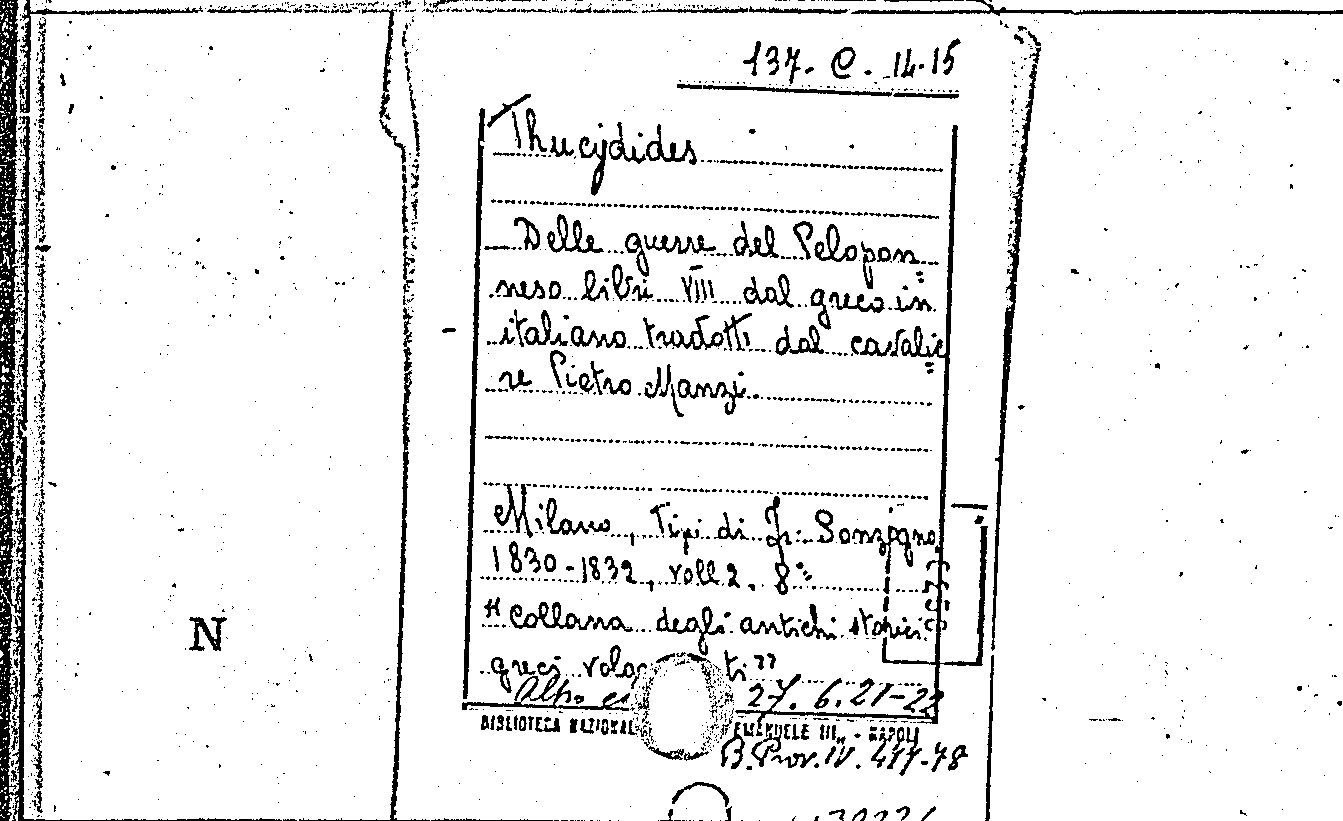 137. C. 14-15
Thucydides
Delle guerre del Pelopon=
neso libri VIII dal greco in
italiano tradotti dal cavalie=
re Pietro Manzi.
Milano, Tipi di Fr: Sonzogno
1830-1832, voll 2. 8°
"Collana degli antichi storici
greci
27. 6. 21-22
BIBLIOTECA NAZIONAL EMANUELE III„ - NAPOLI
B. Prov. IV.
N